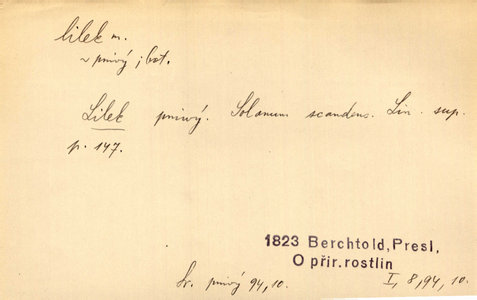 lilek m.
~ pnivý ; bot.
Lilek pnivý. Solanum scandens. Lin. sup.
p. 147.
1823 Berchtold, Presl,
O přir. rostlin
Sr. pnivý 94, 10.
I, 8, 94, 10.